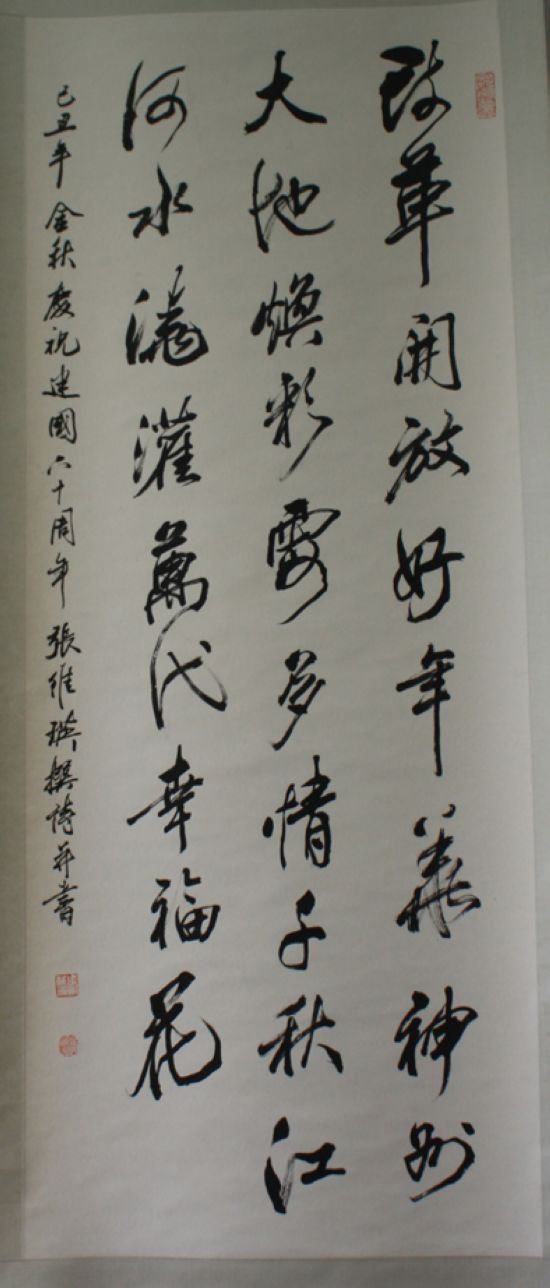 改革開放好年華神州
大地煥彩霞多情千秋江
河水澆灌萬代幸福花
己丑年金秋慶祝建國六十周年張維瑛撰詩并書